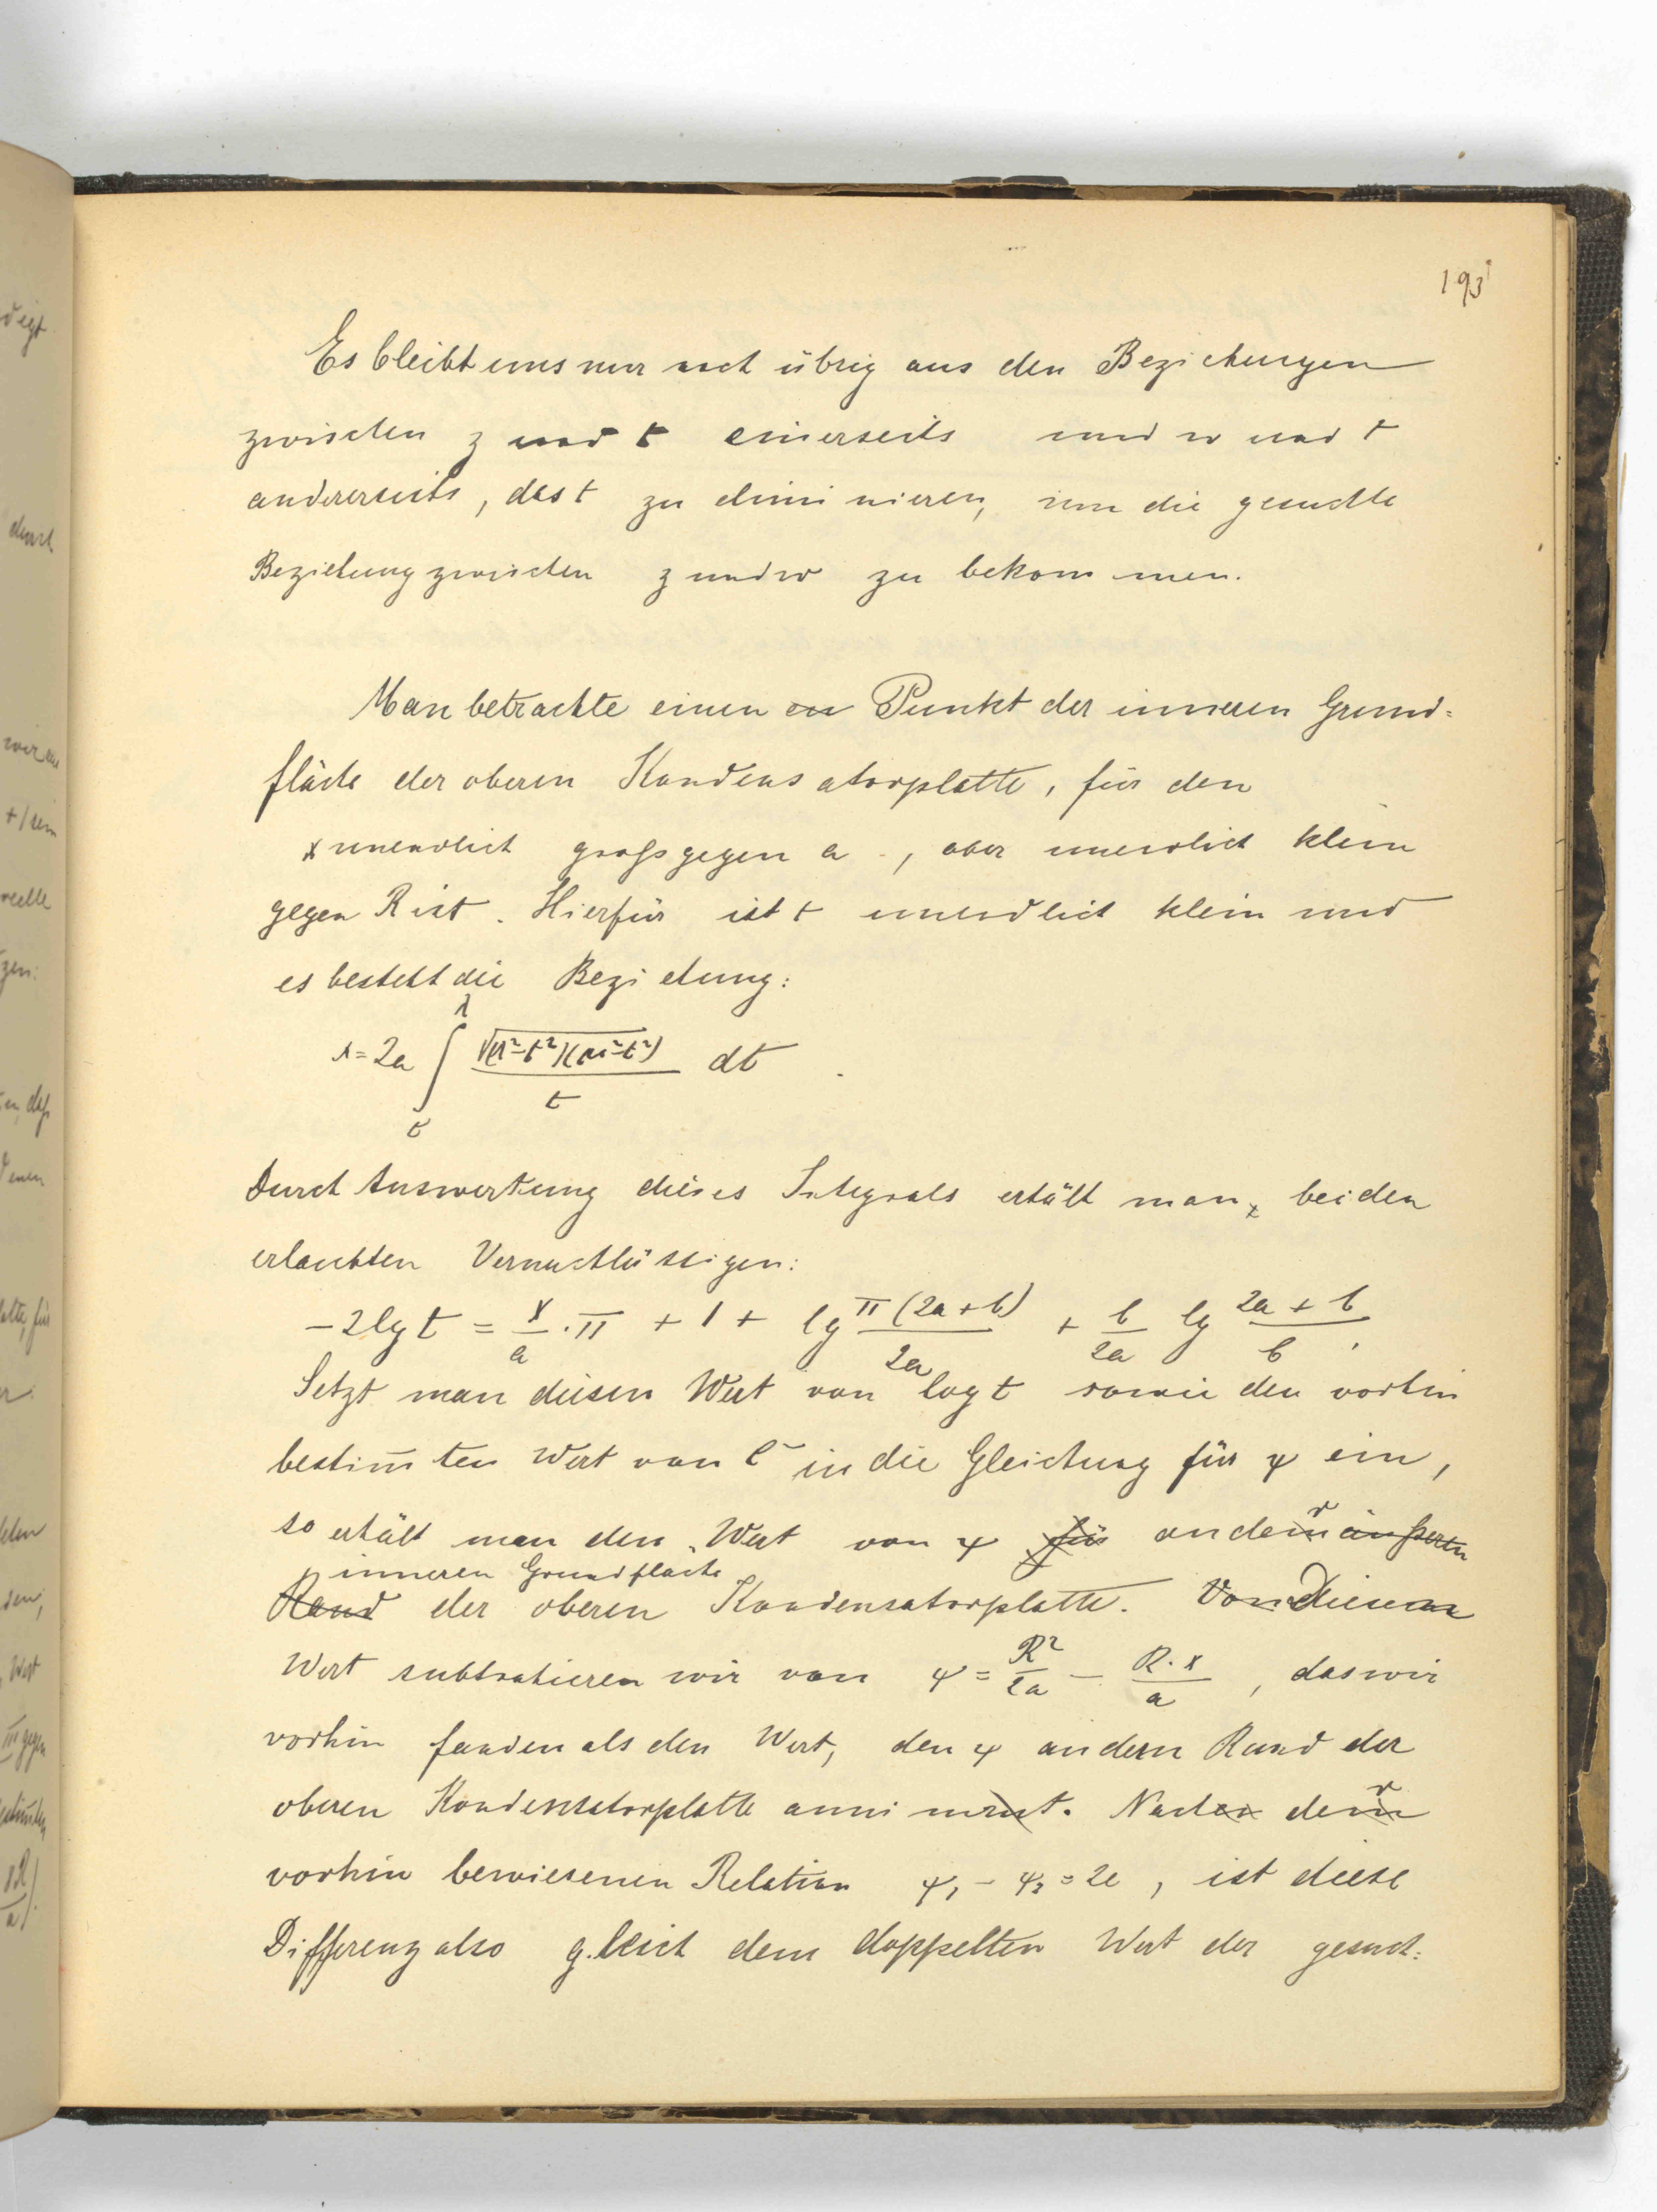 193
Es bleibt uns nur noch übrig aus den Beziehungen
zwischen z und t einerseits und w und t
andererseits, das t zu eliminieren, um die gesuchte
Beziehung zwischen z und w zu bekommen.
Man betrachte einen Punkt der inneren Grund=
fläche der oberen Kondensatorplatte, für den
x unendlich groß gegen a, aber unendlich klein
gegen R ist. Hierfür ist t unendlich klein und
es besteht die Beziehung:
x = 2a ∫ √((λ²-t²)(μ²-t²)) / t dt
Durch Auswertung dieses Integrals erhält man, bei den
erlaubten Vernachlässigen:
-2lg t = x/a · π + 1 + lg π(2a+b)/2a + b/2a lg (2a+b)/b,
Setzt man diesen Wert von log t sowie den vorhin
bestim̄ten Wert von C in die Gleichung für ψ ein,
so erhält man den Wert von ψ für an der äußeren
inneren Grundfläche
Rand der oberen Kondensatorplatte. Von Diesem
Wert subtrahieren wir von ψ = R²/2a - R·x/a, das wir
vorhin fanden als den Wert, den ψ an dem Rand der
oberen Kondensatorplatte annimmt. Nach der
vorhin bewiesenen Relation ψ₁ - ψ₂ = 2e, ist diese
Differenz also gleich dem doppelten Wert der gesuch=